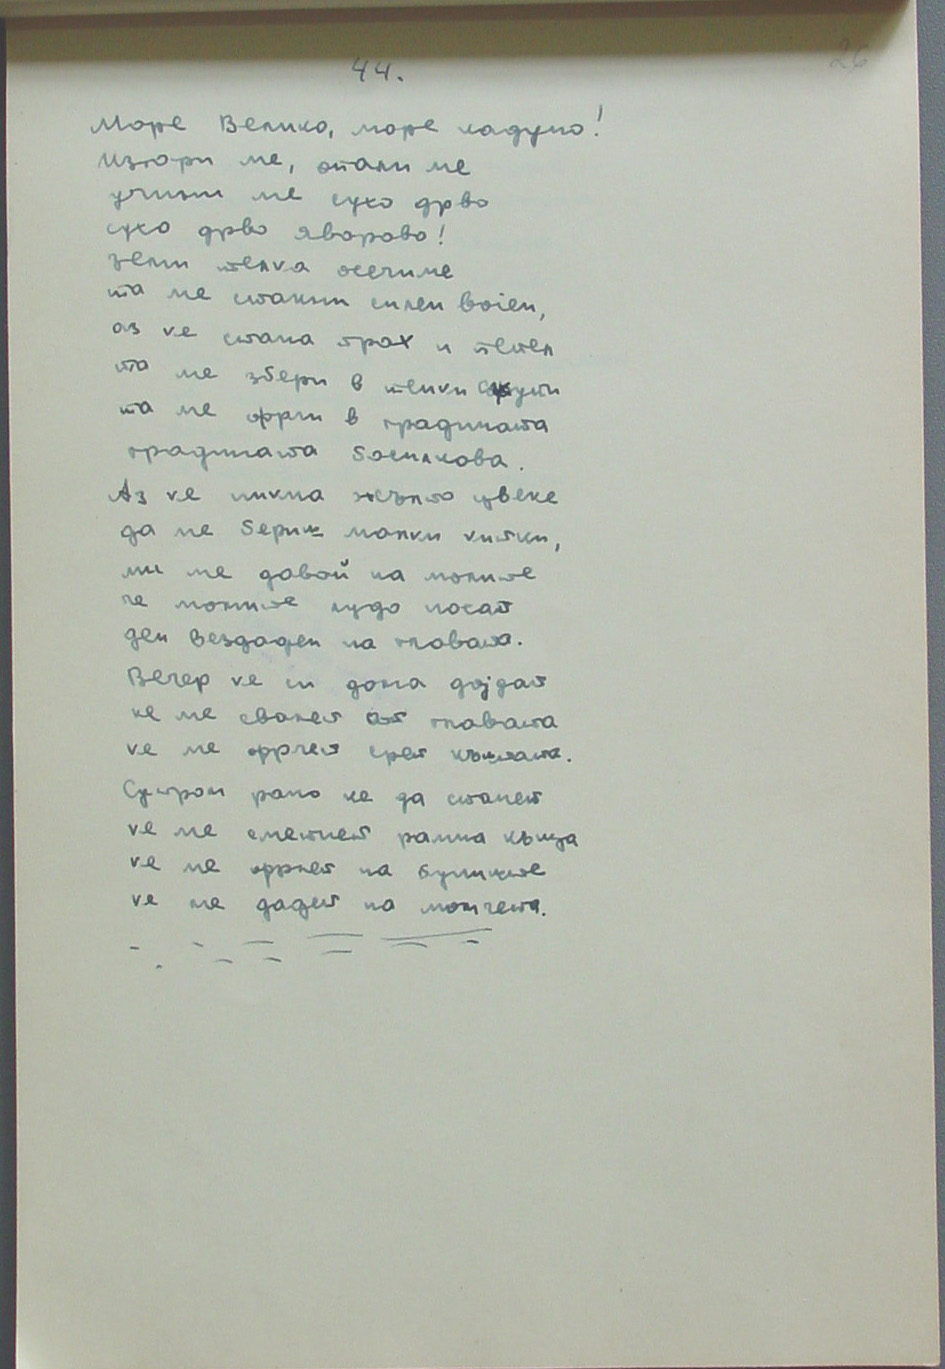 26
44.
Море Велико, море кадуно!
Изгори ме, опали ме
учини ме сухо дрво
сухо дрво яворово!
земи пепва осечиме
та ме стани силен војен,
аз ке стана прах и пепел
та ме збери в тенки скути
та ме фрли в градината
градината босилкова.
Аз ке никна жълто цвеке
да ме бериш малки китки,
ми ме давай на момите
че момите лудо носат
ден вездаден на главата.
Вечер ке си дома дојдат
ке ме свалет от главата
ке ме фрлет срет къшата.
Сутром рано ке да станет
ке ме сметнет рамна къща
ке ме фрлет на буниште
ке ме дадет на момчета.